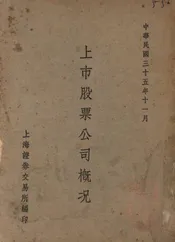 中華民國三十五年十一月
上市股票公司概況
上海證券交易所編印